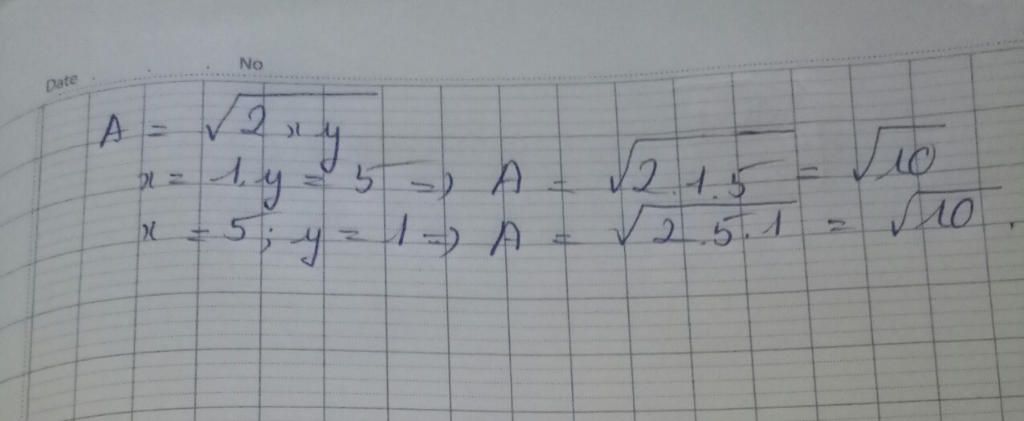 Date No
A = √2xy
x = 1, y = 5 => A = √2.1.5 = √10
x = 5; y = 1 => A = √2.5.1 = √10.